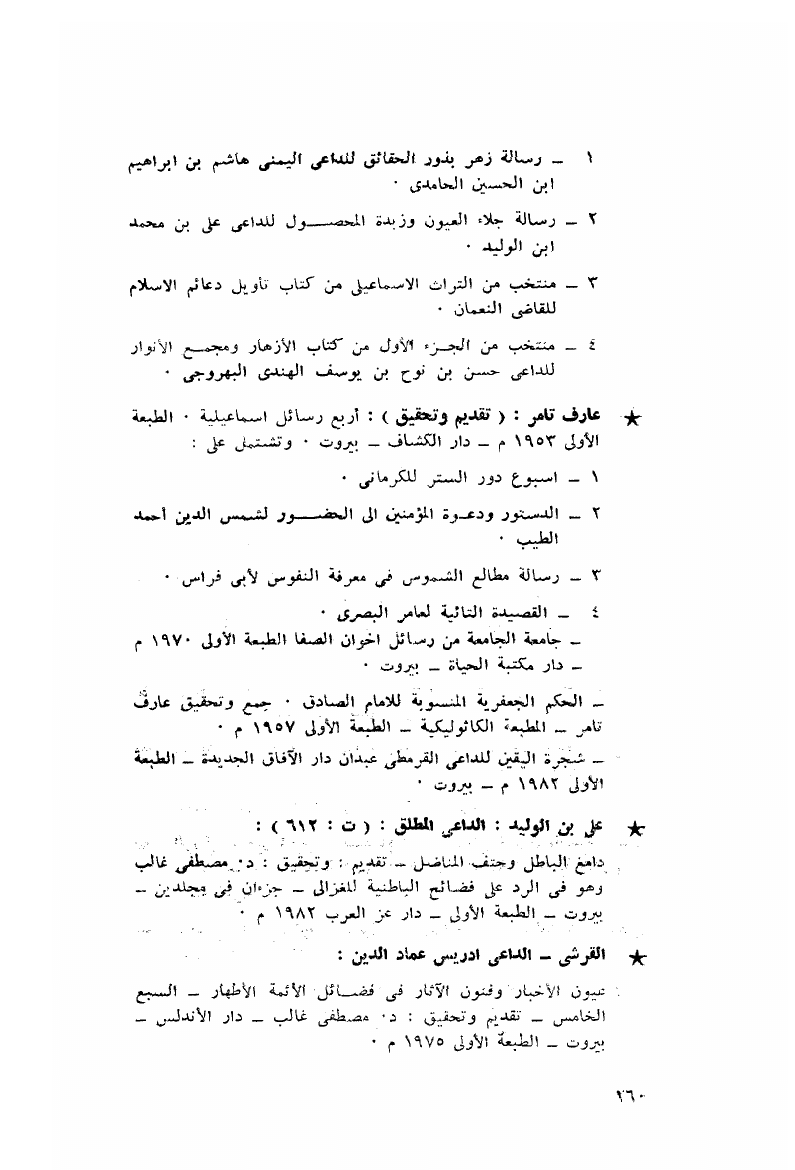 ١ ــ رسالة زهر بذور الحقائق للداعى اليمنى هاشم بن ابراهيم
ابن الحسين الحامدى ٠
٢ ــ رسالة جلاء العيون وزبدة المحصـــول للداعى على بن محمد
ابن الوليد ٠
٣ ــ منتخب من التراث الاسماعيلى من كتاب تأويل دعائم الاسلام
للقاضى النعمان ٠
٤ ــ منتخب من الجـزء الأول من كتاب الأزهار ومجمـع الأنوار
للداعى حسن بن نوح بن يوسف الهندى البهروجى ٠
★ عارف تامر : ( تقديم وتحقيق ) : أربع رسائل اسماعيلية ٠ الطبعة
الأولى ١٩٥٣ م ــ دار الكشاف ــ بيروت ٠ وتشتمل على :
١ ــ اسبوع دور الستر للكرمانى ٠
٢ ــ الدستور ودعـوة المؤمنين الى الحضـــور لشمس الدين أحمد
الطيب ٠
٣ ــ رسالة مطالع الشموس فى معرفة النفوس لأبى فراس ٠
٤ ــ القصيدة التائية لعامر البصرى ٠
ــ جامعة الجامعة من رسائل اخوان الصفا الطبعة الأولى ١٩٧٠ م
ــ دار مكتبة الحياة ــ بيروت ٠
ــ الحكم الجعفرية المنسوبة للامام الصادق ٠ جمع وتحقيق عارف
تامر ــ المطبعة الكاثوليكية ــ الطبعة الأولى ١٩٥٧ م ٠
ــ شجرة اليقين للداعى القرمطى عبدان دار الآفاق الجديدة ــ الطبعة
الأولى ١٩٨٢ م ــ بيروت ٠
★ على بن الوليد : الداعى المطلق : ( ت : ٦١٢ ) :
دامغ الباطل وحتف المناضل ــ تقديم : وتحقيق : د٠ مصطفى غالب
وهو فى الرد على فضائح الباطنية للغزالى ــ جزءان فى مجلدين ــ
بيروت ــ الطبعة الأولى ــ دار عز العرب ١٩٨٢ م ٠
★ القرشى ــ الداعى ادريس عماد الدين :
عيون الأخبار وفنون الآثار فى فضـائل الأئمة الأطهار ــ السبع
الخامس ــ تقديم وتحقيق : د٠ مصطفى غالب ــ دار الأندلس ــ
بيروت ــ الطبعة الأولى ١٩٧٥ م ٠
٢٦٠